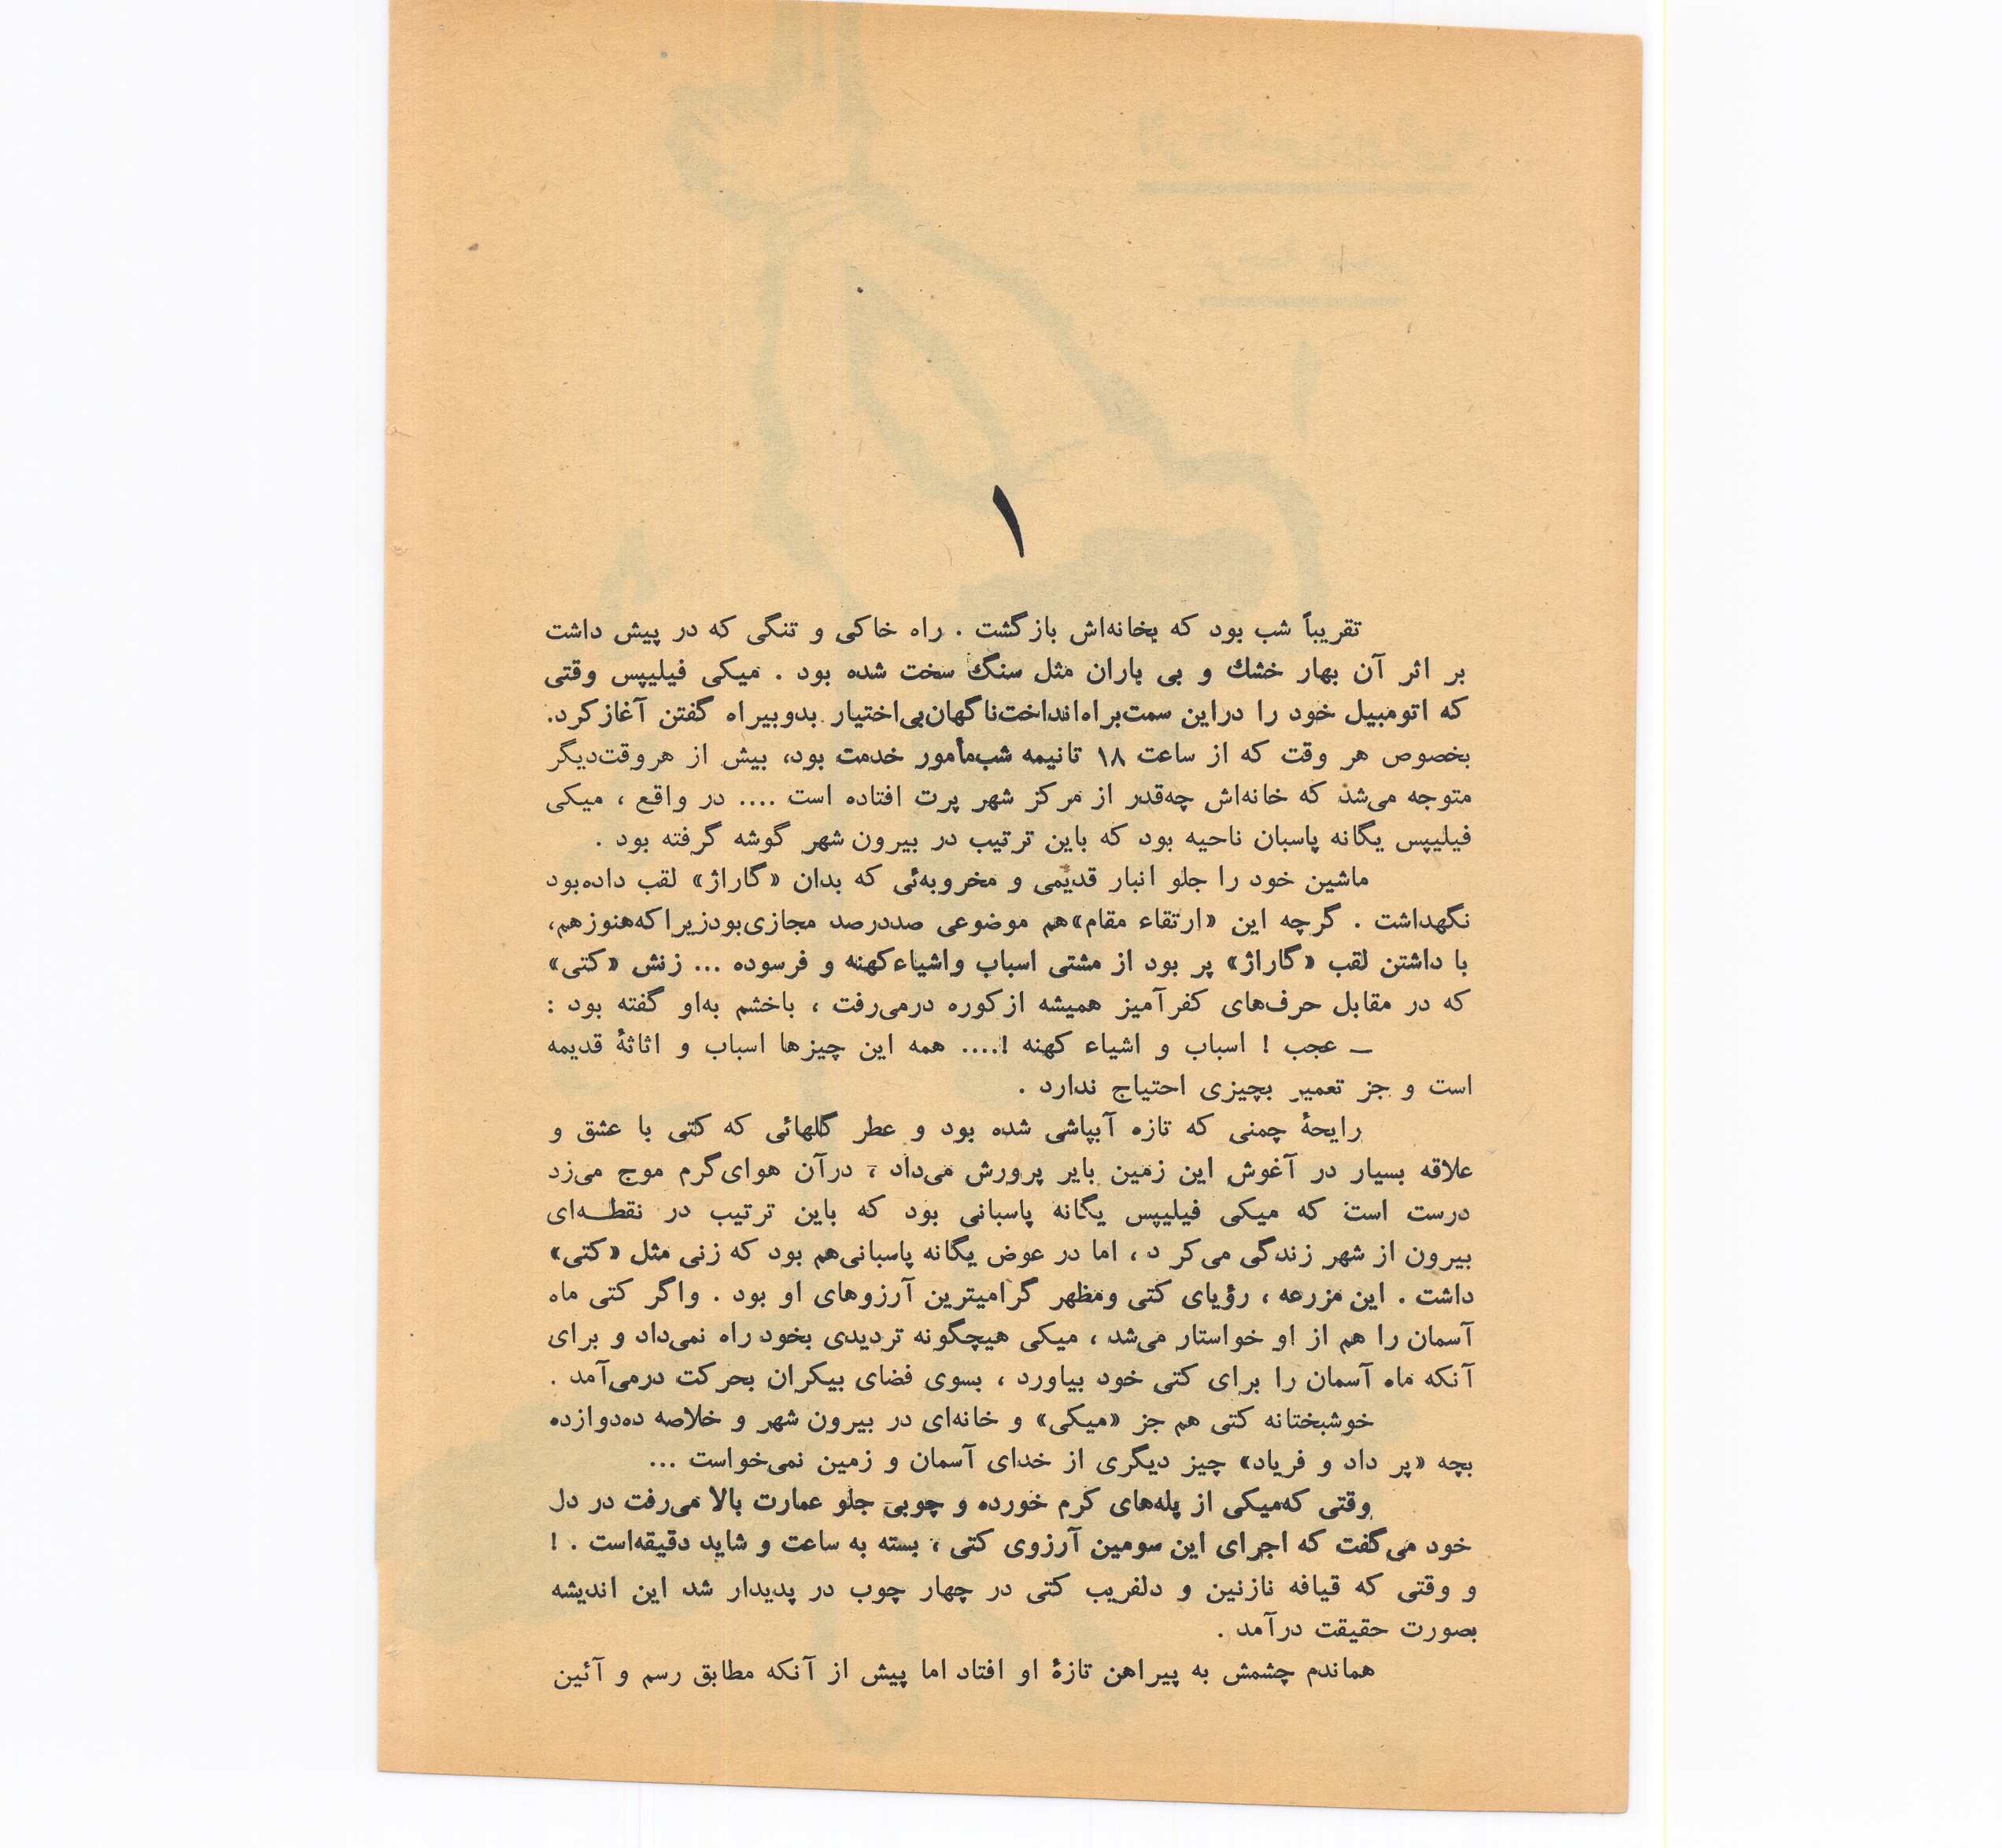 ۱
تقریباً شب بود که بخانه‌اش بازگشت . راه خاکی و تنگی که در پیش داشت
بر اثر آن بهار خشك و بی باران مثل سنگ سخت شده بود . میکی فیلیپس وقتی
که اتومبیل خود را دراین سمت‌براه‌انداخت‌ناگهان‌بی‌اختیار بدوبیراه گفتن آغازکرد.
بخصوص هر وقت که از ساعت ۱۸ تانیمه شب‌مأمور خدمت بود، بیش از هروقت‌دیگر
متوجه می‌شد که خانه‌اش چه‌قدر از مرکز شهر پرت افتاده است .... در واقع ، میکی
فیلیپس یگانه پاسبان ناحیه بود که باین ترتیب در بیرون شهر گوشه گرفته بود .
ماشین خود را جلو انبار قدیمی و مخروبه‌ئی که بدان «گاراژ» لقب داده‌بود
نگهداشت . گرچه این «ارتقاء مقام»هم موضوعی صددرصد مجازی‌بودزیراکه‌هنوزهم،
با داشتن لقب «گاراژ» پر بود از مشتی اسباب واشیاءکهنه و فرسوده ... زنش «کتی»
که در مقابل حرف‌های کفرآمیز همیشه ازکوره درمی‌رفت ، باخشم به‌او گفته بود :
— عجب ! اسباب و اشیاء کهنه !.... همه این چیزها اسباب و اثاثهٔ قدیمه
است و جز تعمیر بچیزی احتیاج ندارد .
رایحهٔ چمنی که تازه آبپاشی شده بود و عطر گلهائی که کتی با عشق و
علاقه بسیار در آغوش این زمین بایر پرورش می‌داد ، درآن هوای‌گرم موج می‌زد
درست است که میکی فیلیپس یگانه پاسبانی بود که باین ترتیب در نقطـه‌ای
بیرون از شهر زندگی می‌کر د ، اما در عوض یگانه پاسبانی‌هم بود که زنی مثل «کتی»
داشت . این مزرعه ، رؤیای کتی ومظهر گرامیترین آرزوهای او بود . واگر کتی ماه
آسمان را هم از او خواستار می‌شد ، میکی هیچگونه تردیدی بخود راه نمی‌داد و برای
آنکه ماه آسمان را برای کتی خود بیاورد ، بسوی فضای بیکران بحرکت درمی‌آمد .
خوشبختانه کتی هم جز «میکی» و خانه‌ای در بیرون شهر و خلاصه ده‌دوازده
بچه «پر داد و فریاد» چیز دیگری از خدای آسمان و زمین نمی‌خواست ...
وقتی که‌میکی از پله‌های کرم خورده و چوبی جلو عمارت بالا می‌رفت در دل
خود می‌گفت که اجرای این سومین آرزوی کتی ، بسته به ساعت و شاید دقیقه‌است . !
و وقتی که قیافه نازنین و دلفریب کتی در چهار چوب در پدیدار شد این اندیشه
بصورت حقیقت درآمد .
هماندم چشمش به پیراهن تازهٔ او افتاد اما پیش از آنکه مطابق رسم و آئین